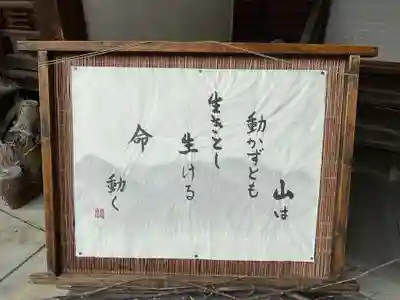 山は
動かずとも
生きとし
生ける
命
動く